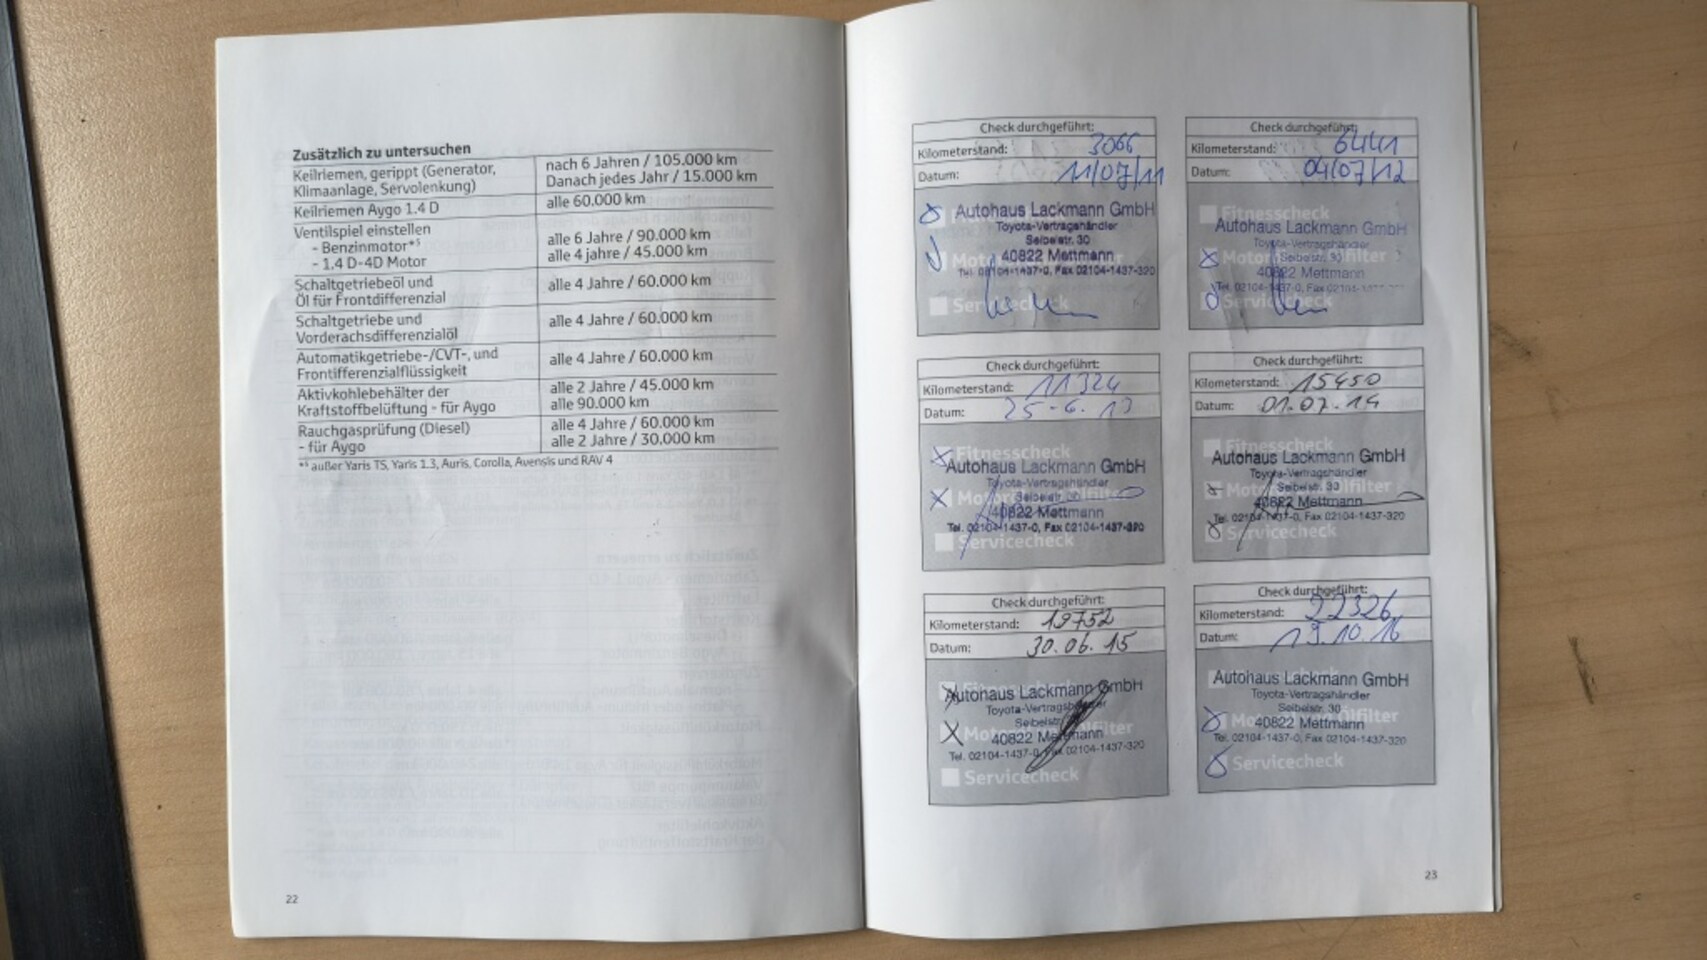 Zusätzlich zu untersuchen
Keilriemen, gerippt (Generator,
Klimaanlage, Servolenkung)
nach 6 Jahren / 105.000 km
Danach jedes Jahr / 15.000 km
Keilriemen Aygo 1.4 D
alle 60.000 km
Ventilspiel einstellen
- Benzinmotor*⁵
- 1.4 D-4D Motor
alle 6 Jahre / 90.000 km
alle 4 jahre / 45.000 km
Schaltgetriebeöl und
Öl für Frontdifferenzial
alle 4 Jahre / 60.000 km
Schaltgetriebe und
Vorderachsdifferenzialöl
alle 4 Jahre / 60.000 km
Automatikgetriebe-/CVT-, und
Frontifferenzialflüssigkeit
alle 4 Jahre / 60.000 km
Aktivkohlebehälter der
Kraftstoffbelüftung - für Aygo
alle 2 Jahre / 45.000 km
alle 90.000 km
Rauchgasprüfung (Diesel)
- für Aygo
alle 4 Jahre / 60.000 km
alle 2 Jahre / 30.000 km
*⁵ außer Yaris TS, Yaris 1.3, Auris, Corolla, Avensis und RAV 4
22
Check durchgeführt:
Kilometerstand: 3066
Datum: 11/07/11
Autohaus Lackmann GmbH
Toyota-Vertragshändler
Seibelstr. 30
40822 Mettmann
Tel. 02104-1437-0, Fax 02104-1437-320
Servicecheck
Check durchgeführt:
Kilometerstand: 6441
Datum: 04/07/12
Fitnesscheck
Autohaus Lackmann GmbH
Toyota-Vertragshändler
Seibelstr. 30
40822 Mettmann
Tel. 02104-1437-0, Fax 02104-
Servicecheck
Check durchgeführt:
Kilometerstand: 11324
Datum: 25-6.13
Fitnesscheck
Autohaus Lackmann GmbH
Toyota-Vertragshändler
Seibelstr. 30
40822 Mettmann
Tel. 02104-1437-0, Fax 02104-1437-320
Servicecheck
Check durchgeführt:
Kilometerstand: 15450
Datum: 01.07.14
Fitnesscheck
Autohaus Lackmann GmbH
Toyota-Vertragshändler
Seibelstr. 30
40822 Mettmann
Tel. 02104-1437-0, Fax 02104-1437-320
Servicecheck
Check durchgeführt:
Kilometerstand: 19752
Datum: 30.06.15
Autohaus Lackmann GmbH
Toyota-Vertragshändler
Seibelstr.
40822 Mettmann
Tel. 02104-1437-0, Fax 02104-1437-320
Servicecheck
Check durchgeführt:
Kilometerstand: 22326
Datum: 19.10.16
Autohaus Lackmann GmbH
Toyota-Vertragshändler
Seibelstr. 30
40822 Mettmann
Tel. 02104-1437-0, Fax 02104-1437-320
Servicecheck
23